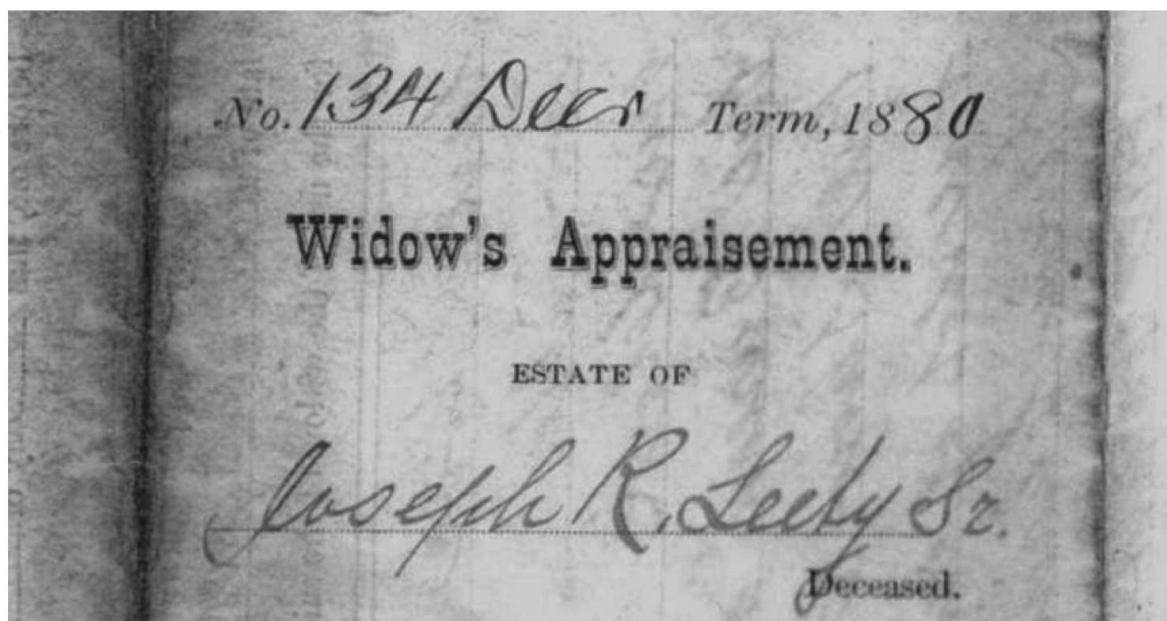 No. 134 Decr Term, 1880
Widow's Appraisement.
ESTATE OF
Joseph R. Seely Sr.
Deceased.